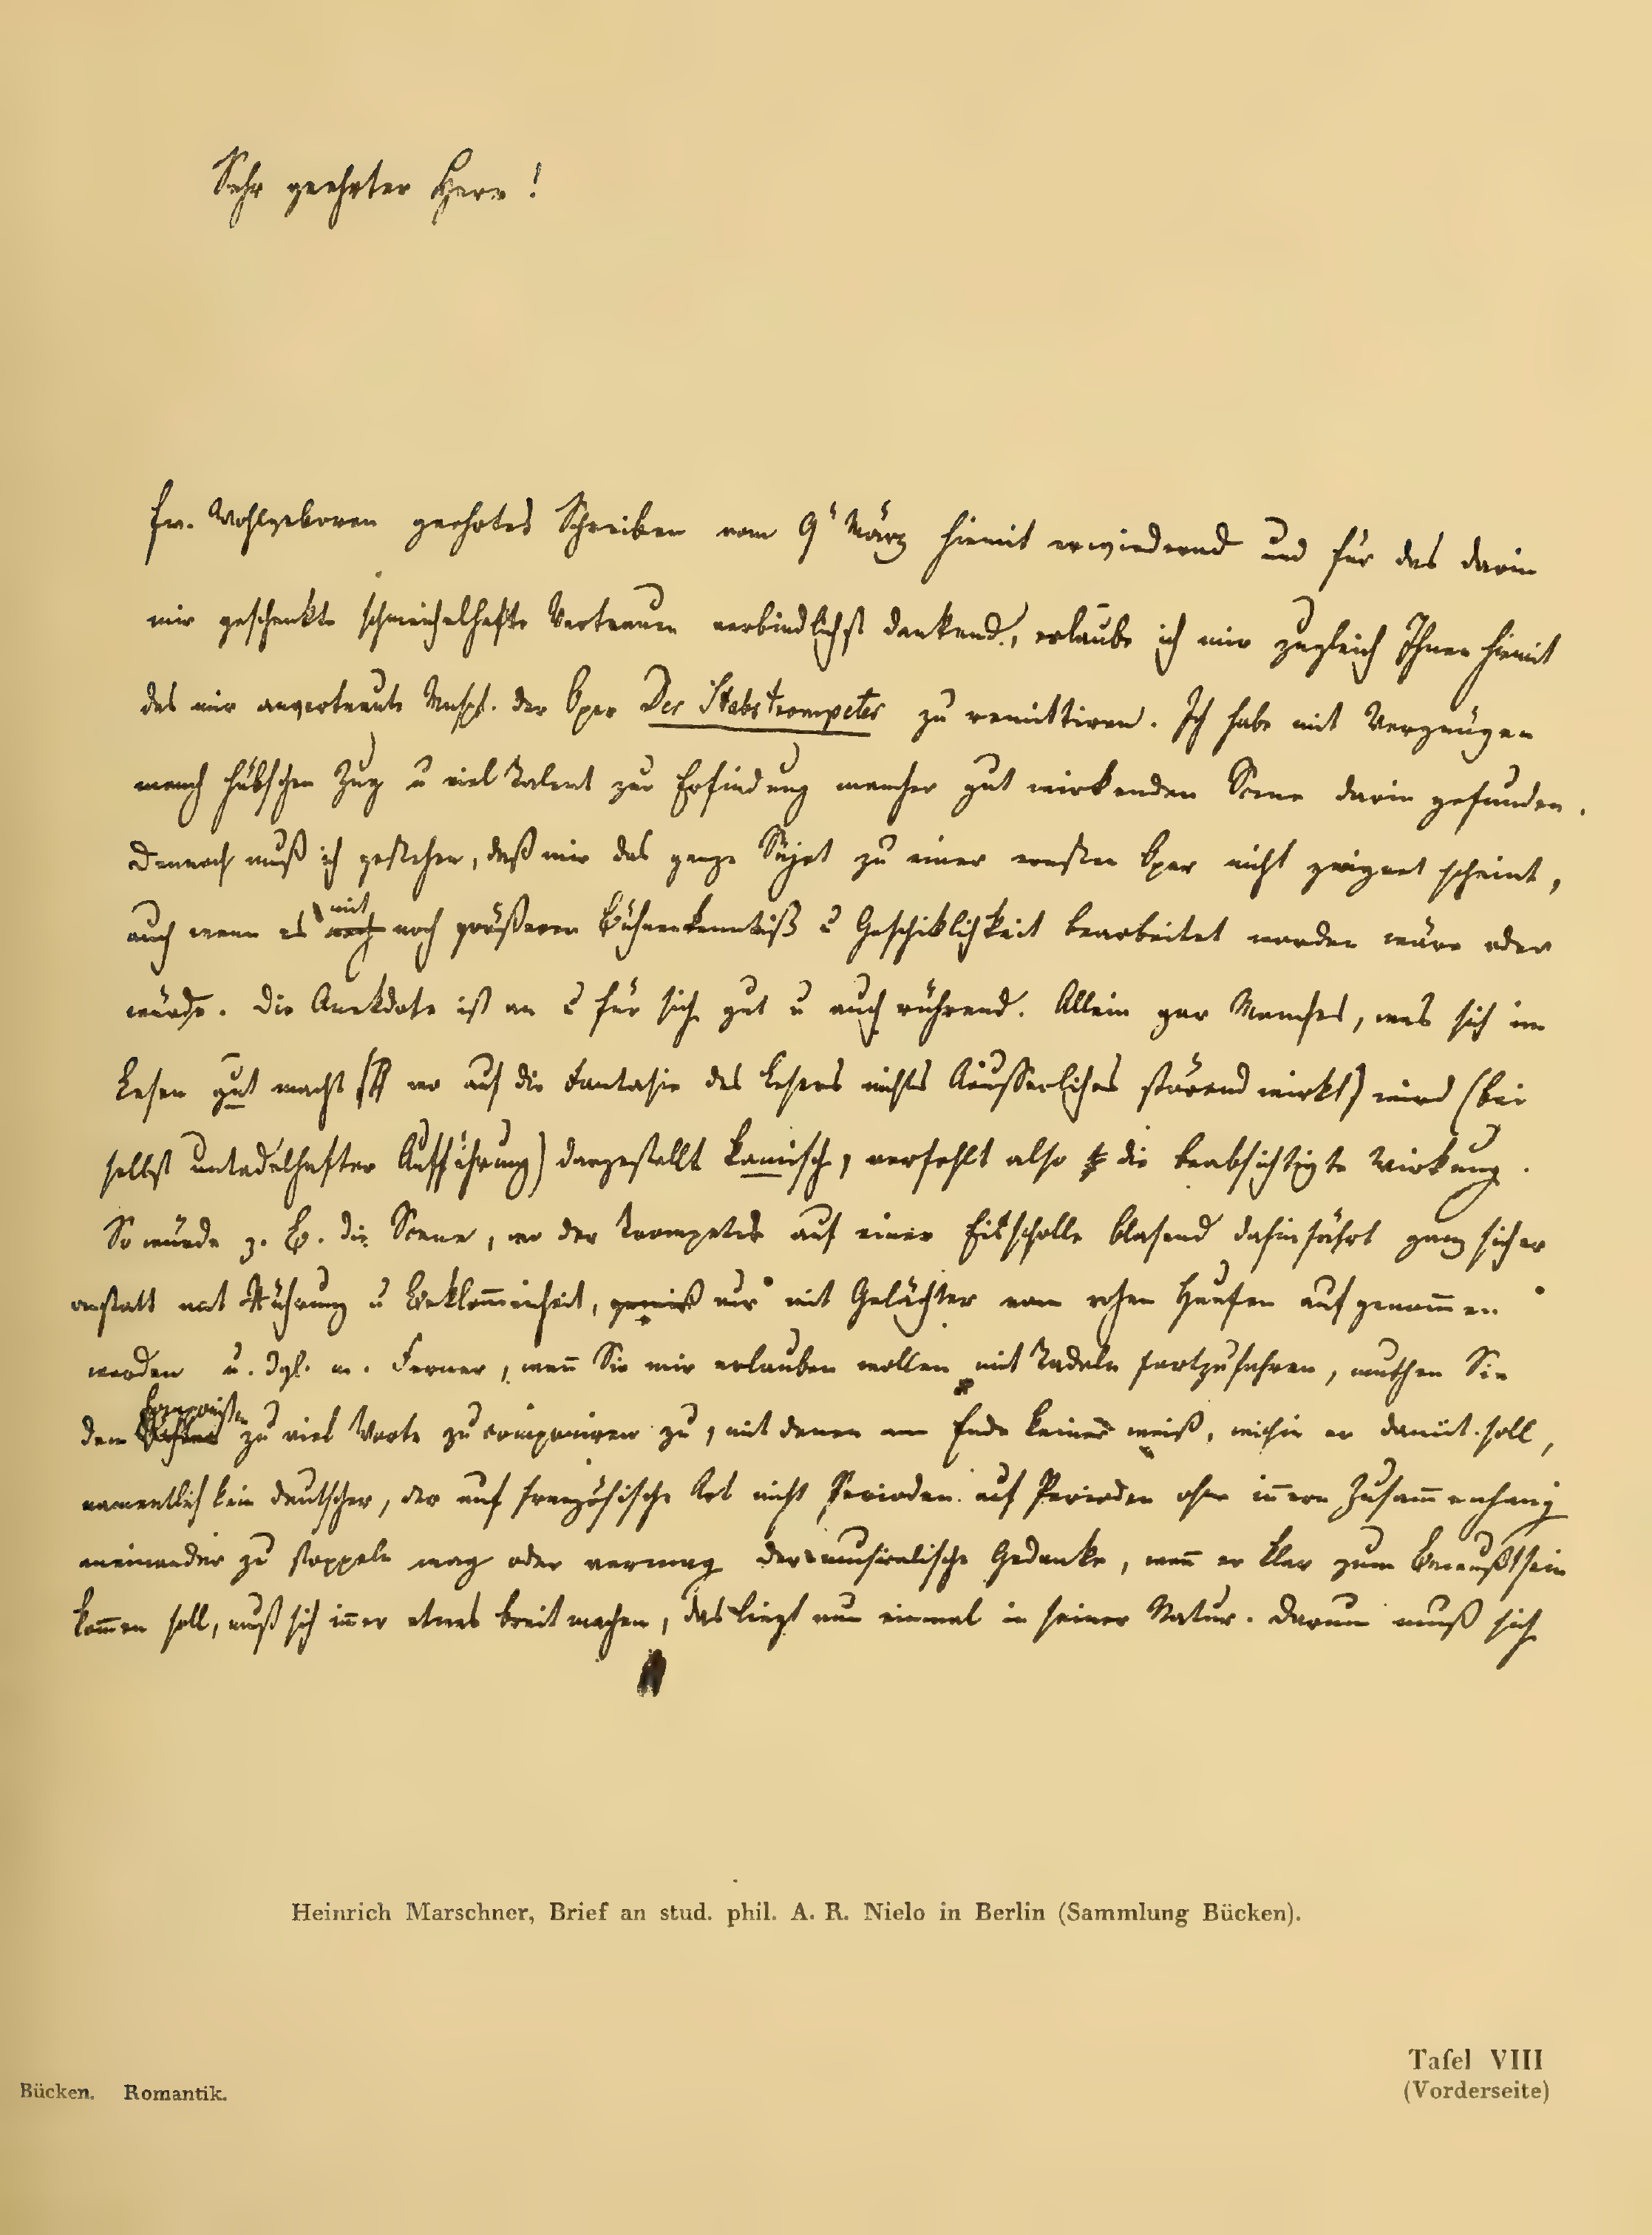 Sehr geehrter Herr!
Ew. Wohlgeboren geehrtes Schreiben vom 9' März hiemit erwiedernd und für das darin
mir geschenkte schmeichelhafte Vertrauen verbindlichst dankend, erlaube ich mir zugleich Ihnen hiemit
das mir anvertraute Mnspt. der Oper Der Stabstrompeter zu remittiren. Ich habe mit Vergnügen
manch hübschen Zug u viel Talent zur Erfindung mancher gut wirkenden Scene darin gefunden.
Dennoch muß ich gestehen, daß mir das ganze Süjet zu einer ernsten Oper nicht geeignet scheint,
auch wenn es mit noch größerer Bühnenkenntniß u Geschiklichkeit bearbeitet worden wäre oder
würde. Die Anekdote ist an u für sich gut u auch rührend. Allein gar Manches, was sich im
Lesen gut macht (wo auf die Fantasie des Lesers nichts Äusserliches störend wirkt) wird (bei
selbst untadelhafter Aufführung) dargestellt komisch, verfehlt also die beabsichtigte Wirkung.
So würde z. B. die Scene, wo der Trompeter auf einer Eisscholle blasend dahinfährt ganz sicher
anstatt mit Rührung u Beklom̅enheit, gewiß nur mit Gelächter vom rohen Haufen aufgenom̅en
werden u. dgl. m. Ferner, wen̅ Sie mir erlauben wollen mit Tadeln fortzufahren, muthen Sie
dem Componisten zu viel Worte zu componiren zu, mit denen am Ende keiner weiß, wohin er damit soll,
namentlich kein deutscher, der auf französische Art nicht Perioden auf Perioden ohne in̅ern Zusam̅enhang
aneinander zu stoppeln mag oder vermag der musicalische Gedanke, wen̅ er klar zum Bewußtsein
kom̅en soll, muß sich im̅er etwas breit machen, das liegt nun einmal in seiner Natur. Darum muß sich
Heinrich Marschner, Brief an stud. phil. A. R. Nielo in Berlin (Sammlung Bücken).
Tafel VIII
Bücken. Romantik.
(Vorderseite)